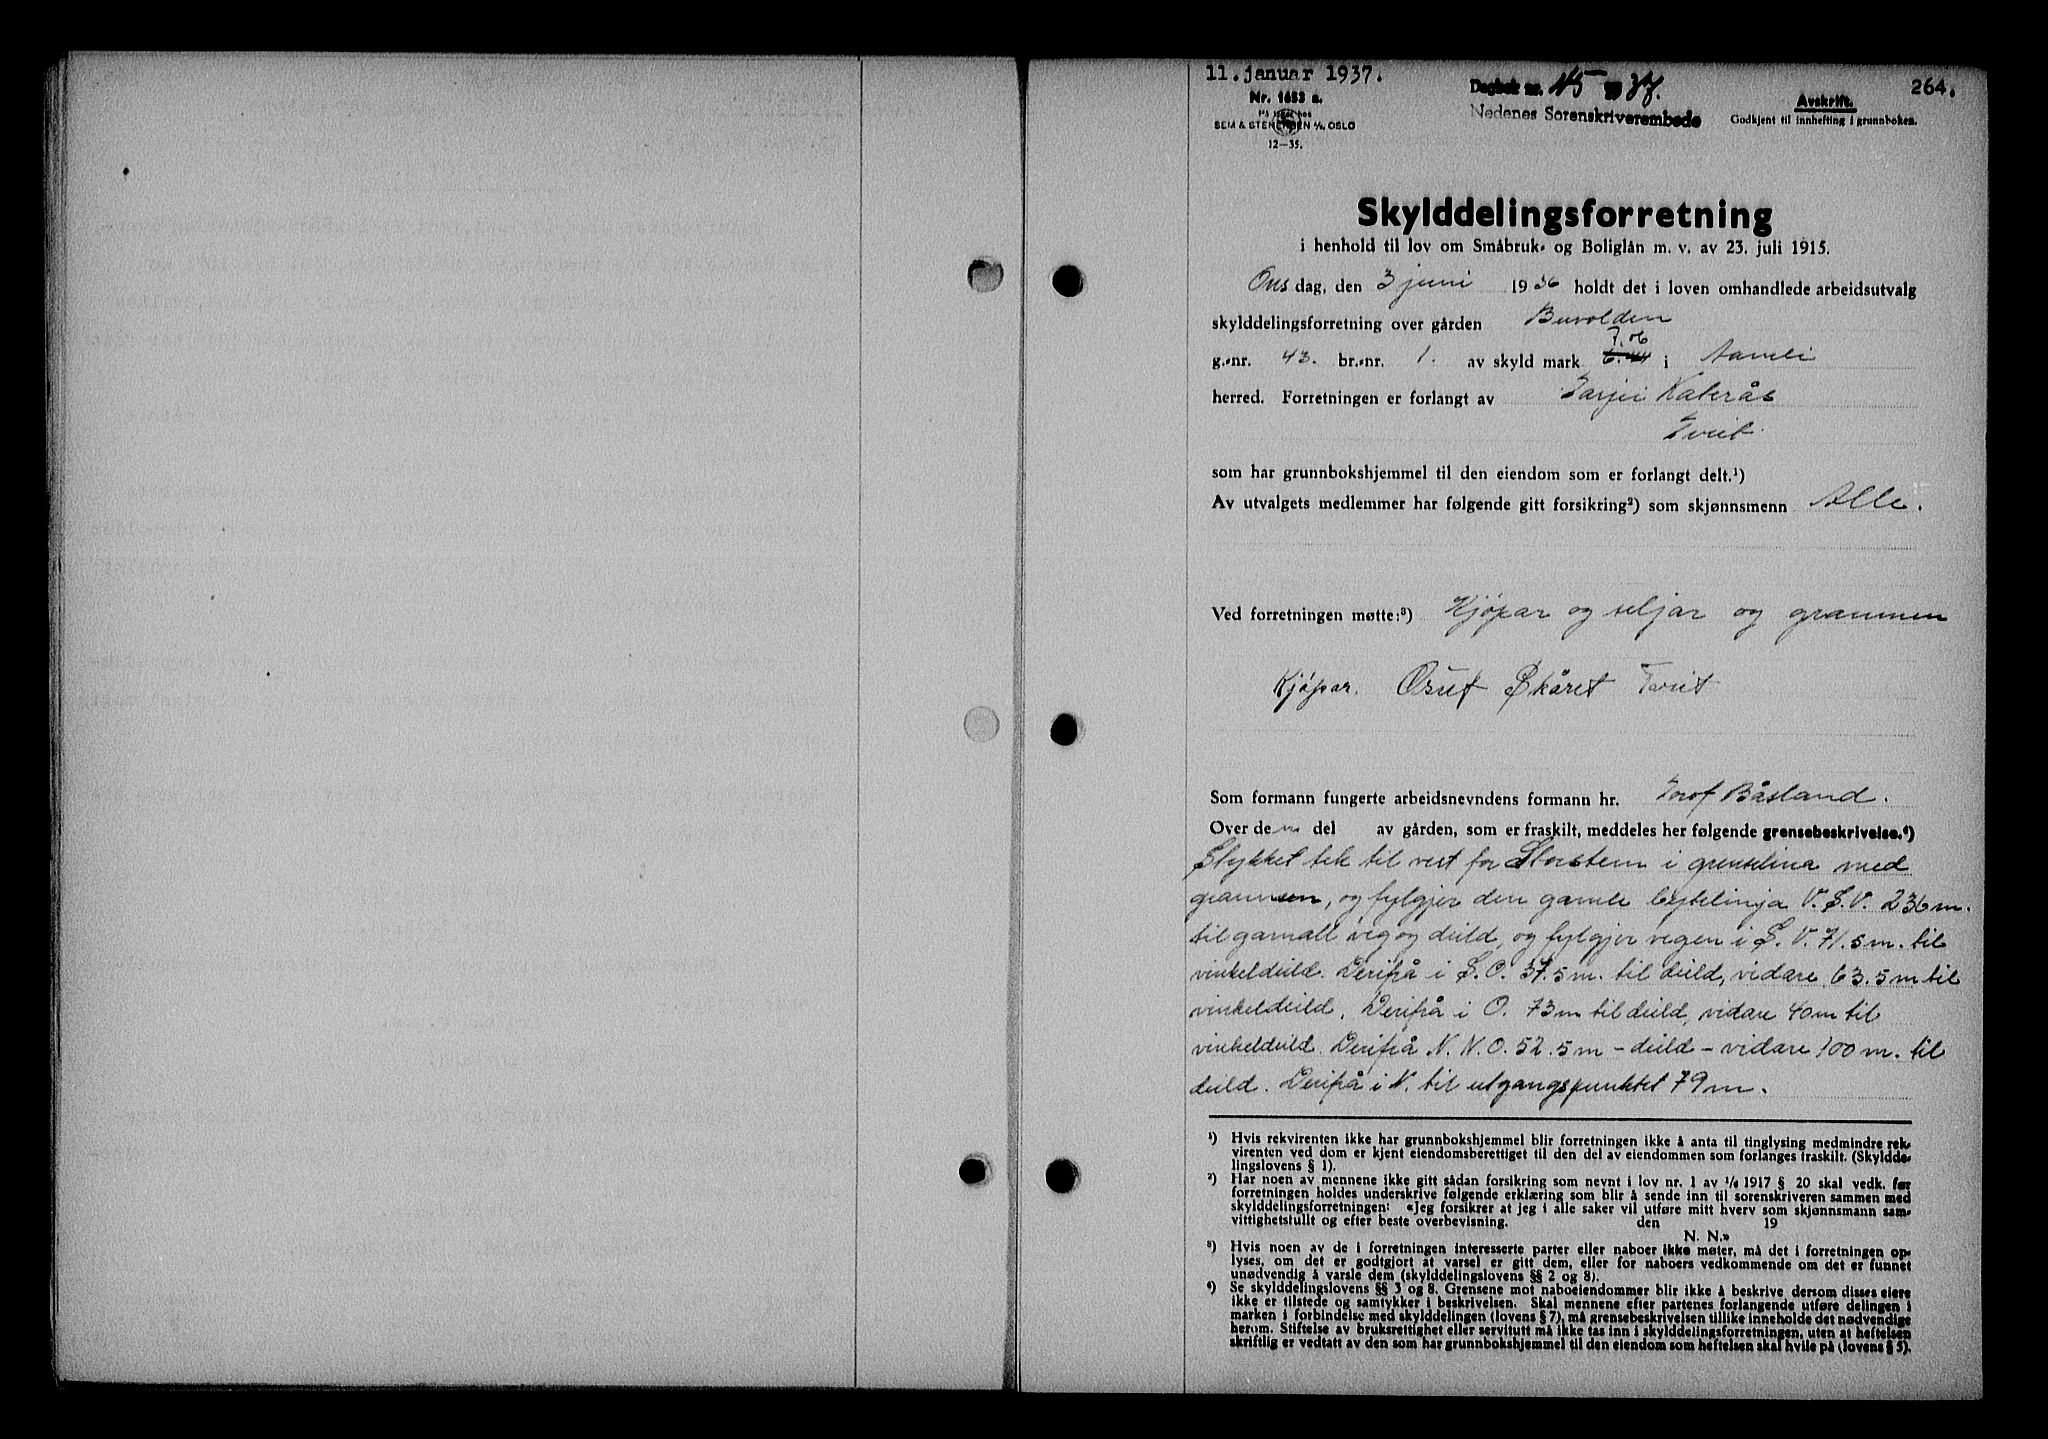 11. januar 1937.
Dagbok nr. 45 1937.
264.
Nr. 1653 a.
Avskrift.
Nedenes Sorenskriverembede
Godkjent til innhefting i grunnboken.
SEM & STENERSEN A/S, OSLO
12—35.
Skylddelingsforretning
i henhold til lov om Småbruk- og Boliglån m. v. av 23. juli 1915.
Onsdag, den 3 juni 1936 holdt det i loven omhandlede arbeidsutvalg
skylddelingsforretning over gården Buvolden
7.06
g.-nr. 43. br.-nr. 1. av skyld mark 6.44 i Aamli
herred. Forretningen er forlangt av Tarjei Katerås
Tveit.
som har grunnbokshjemmel til den eiendom som er forlangt delt.¹)
Av utvalgets medlemmer har følgende gitt forsikring²) som skjønnsmenn Alle.
Ved forretningen møtte:³) Kjøpar og seljar og grannen
Kjøpar. Osuf Skåret Tveit
Som formann fungerte arbeidsnevndens formann hr. Torof Båsland.
Over den del av gården, som er fraskilt, meddeles her følgende grensebeskrivelse.⁴)
Stykket tek til vest for Storstein i grenselina med
grannen, og fylgjer den gamle bytelinja V.S.V. 236 m.
til gamall veg og deild, og fylgjer vegen i S.V. 71.5 m. til
vinkeldeild. Derifrå i S.O. 37.5 m. til deild, vidare 63.5 m til
vinkeldeild. Derifrå i O. 73 m til deild, vidare 40 m til
vinkeldeild. Derifrå N.N.O. 52.5 m – deild – vidare 100 m. til
deild. Derifrå i N. til utgangspunktet 79 m.
¹) Hvis rekvirenten ikke har grunnbokshjemmel blir forretningen ikke å anta til tinglysing medmindre rek-
virenten ved dom er kjent eiendomsberettiget til den del av eiendommen som forlanges fraskilt. (Skyldde-
lingslovens § 1).
²) Har noen av mennene ikke gitt sådan forsikring som nevnt i lov nr. 1 av 1/6 1917 § 20 skal vedk. før
forretningen holdes underskrive følgende erklæring som blir å sende inn til sorenskriveren sammen med
skylddelingsforretningen: «Jeg forsikrer at jeg i alle saker vil utføre mitt hverv som skjønnsmann sam-
vittighetsfullt og efter beste overbevisning. den 19
N. N.»
³) Hvis noen av de i forretningen interesserte parter eller naboer ikke møter, må det i forretningen op-
lyses, om det er godtgjort at varsel er gitt dem, eller for naboers vedkommende om det er funnet
unødvendig å varsle dem (skylddelingslovens §§ 2 og 8).
⁴) Se skylddelingslovens §§ 3 og 8. Grensene mot naboeiendommer blir ikke å beskrive dersom disses eiere
ikke er tilstede og samtykker i beskrivelsen. Skal mennene efter partenes forlangende utføre delingen i
marken i forbindelse med skylddelingen (lovens § 7), må grensebeskrivelsen tillike inneholde det nødvendige
herom. Stiftelse av bruksrettighet eller servitutt må ikke tas inn i skylddelingsforretningen, uten at heftelsen
skriftlig er vedtatt av den som har grunnbokshjemmel til den eiendom som heftelsen skal hvile på (lovens § 5).